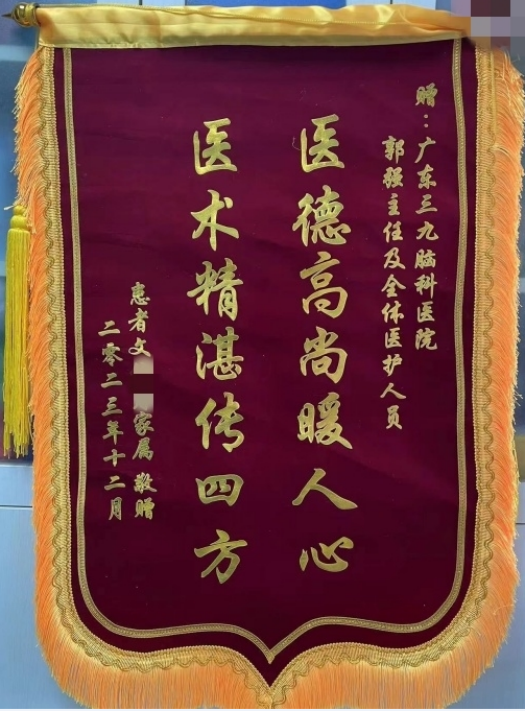 赠：广东三九脑科医院
郭强主任及全体医护人员
医德高尚暖人心
医术精湛传四方
患者文家属 敬赠
二零二三年十二月